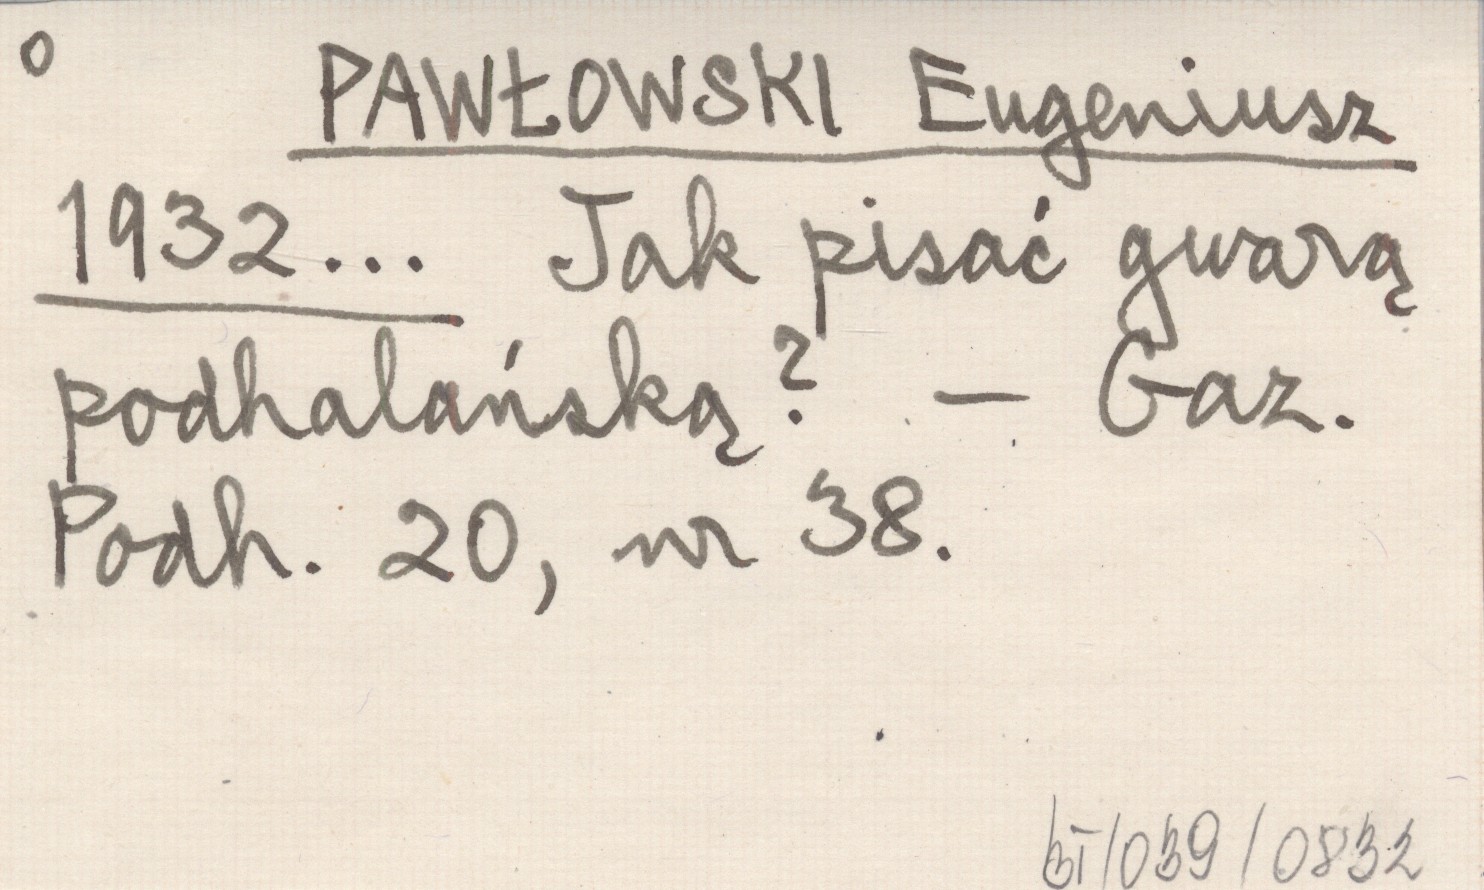 o
PAWŁOWSKI Eugeniusz
1932... Jak pisać gwarą
podhalańską? – Gaz.
Podh. 20, nr 38.
/039/0832